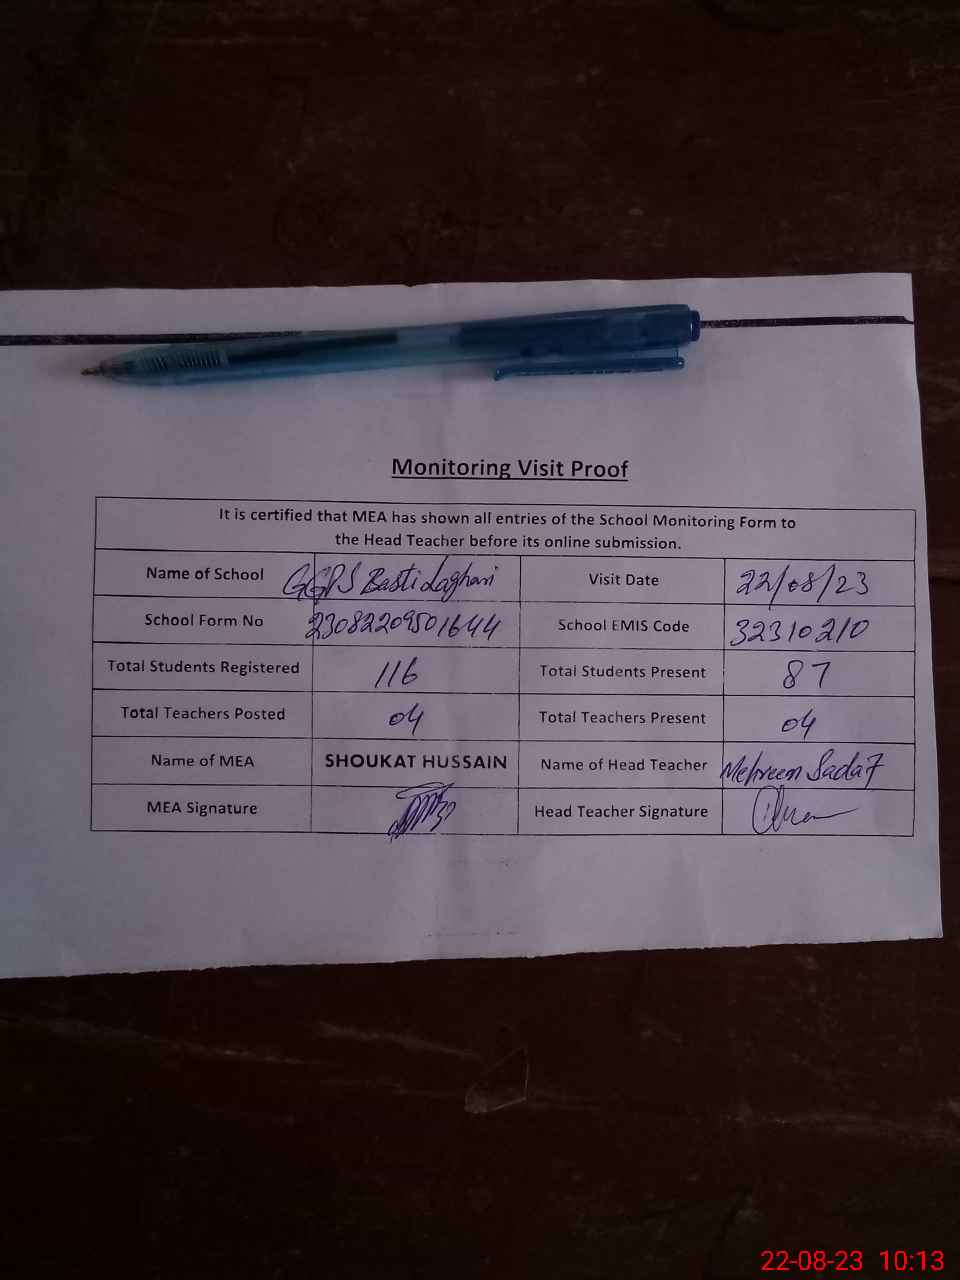 Monitoring Visit Proof
It is certified that MEA has shown all entries of the School Monitoring Form to
the Head Teacher before its online submission.
Name of School GGPS Basti Laghari Visit Date 22/08/23
School Form No 23082209501644 School EMIS Code 32310210
Total Students Registered 116 Total Students Present 87
Total Teachers Posted 04 Total Teachers Present 04
Name of MEA SHOUKAT HUSSAIN Name of Head Teacher Mehreen Sadaf
MEA Signature Head Teacher Signature
22-08-23 10:13